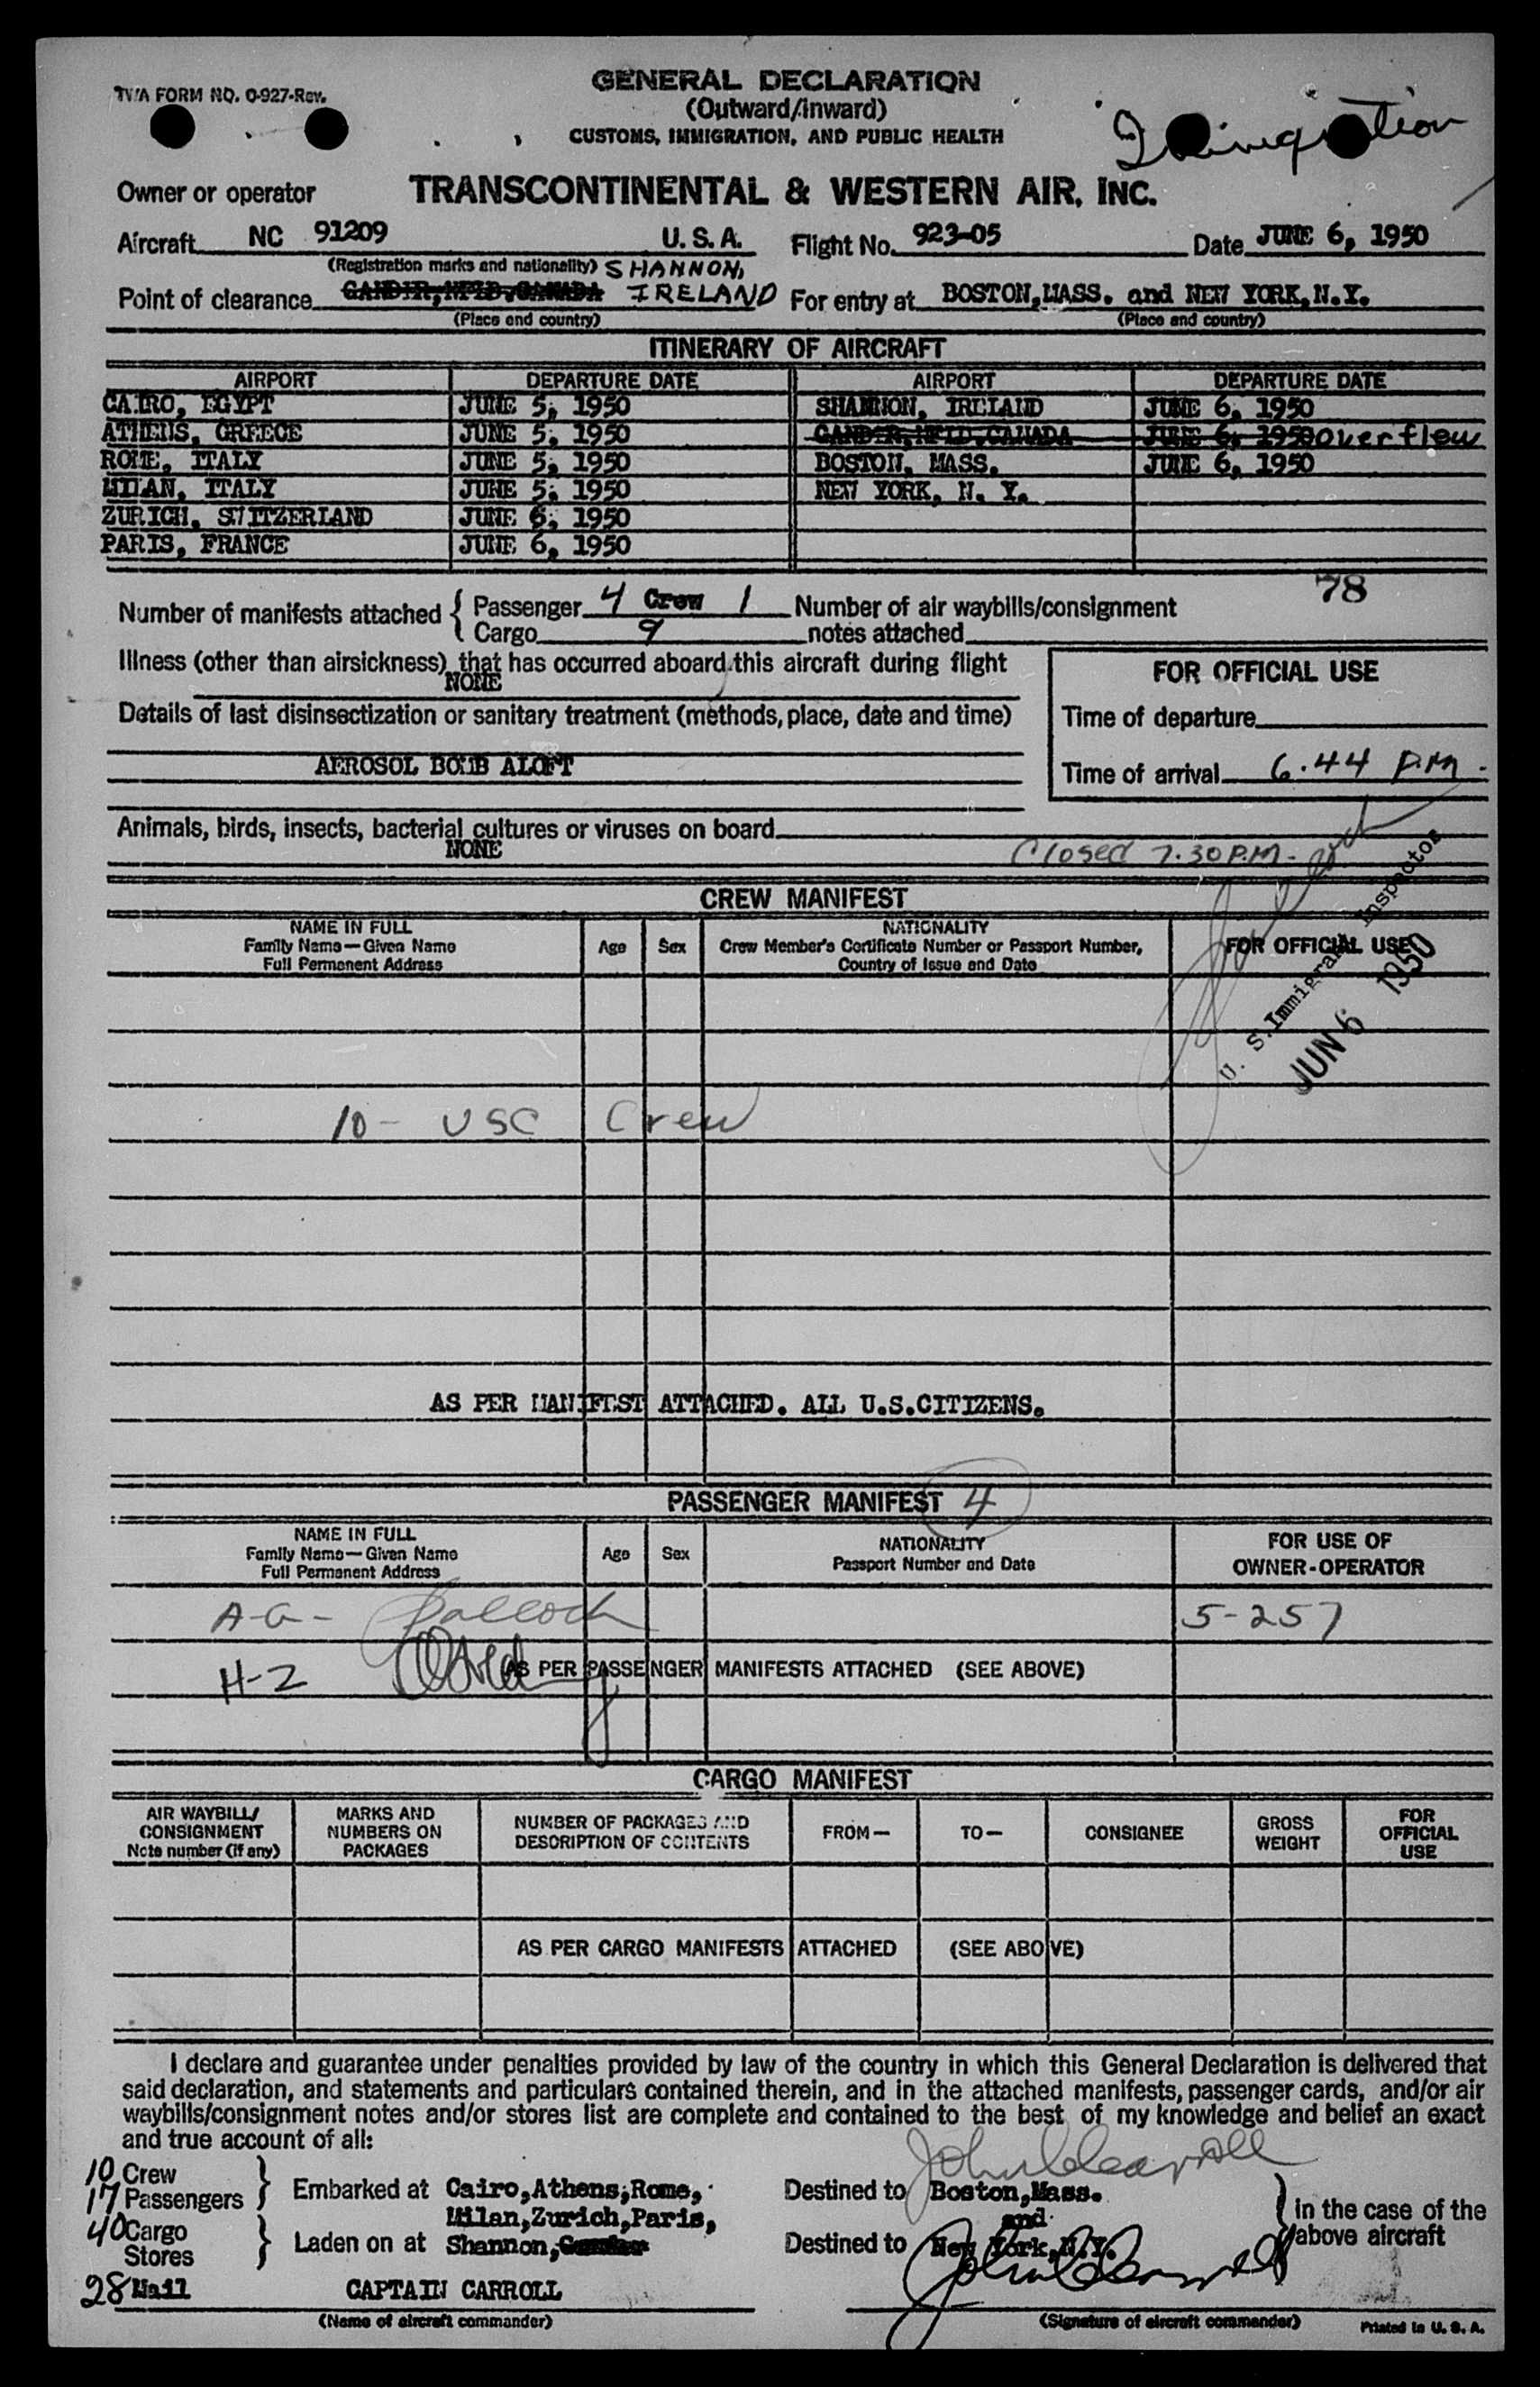 TWA FORM NO. O-927-Rev.
GENERAL DECLARATION
(Outward/Inward)
CUSTOMS, IMMIGRATION, AND PUBLIC HEALTH
Owner or operator TRANSCONTINENTAL & WESTERN AIR, INC.
Aircraft NC 91209 U.S.A. Flight No. 923-05 Date JUNE 6, 1950
(Registration marks and nationality) SHANNON,
Point of clearance GANDER, NFLD, CANADA IRELAND For entry at BOSTON, MASS. and NEW YORK, N.Y.
(Place and country) (Place and country)
ITINERARY OF AIRCRAFT
AIRPORT DEPARTURE DATE AIRPORT DEPARTURE DATE
CAIRO, EGYPT JUNE 5, 1950 SHANNON, IRELAND JUNE 6, 1950
ATHENS, GREECE JUNE 5, 1950 GANDER, NFLD, CANADA JUNE 6, 1950 overflew
ROME, ITALY JUNE 5, 1950 BOSTON, MASS. JUNE 6, 1950
MILAN, ITALY JUNE 5, 1950 NEW YORK, N. Y.
ZURICH, SWITZERLAND JUNE 6, 1950
PARIS, FRANCE JUNE 6, 1950
78
Number of manifests attached { Passenger 4 Crew 1 Number of air waybills/consignment
Cargo 9 notes attached
Illness (other than airsickness) that has occurred aboard this aircraft during flight
NONE
FOR OFFICIAL USE
Details of last disinsectization or sanitary treatment (methods, place, date and time)
Time of departure
AEROSOL BOMB ALOFT
Time of arrival 6.44 P.M.
Animals, birds, insects, bacterial cultures or viruses on board
NONE
Closed 7.30 P.M.
CREW MANIFEST
NAME IN FULL
Family Name—Given Name
Full Permanent Address
Age Sex
NATIONALITY
Crew Member's Certificate Number or Passport Number,
Country of Issue and Date
FOR OFFICIAL USE
U. S. Immigrant Inspector
JUN 6 1950
10 - USC Crew
AS PER MANIFEST ATTACHED. ALL U.S.CITIZENS.
PASSENGER MANIFEST 4
NAME IN FULL
Family Name—Given Name
Full Permanent Address
Age Sex
NATIONALITY
Passport Number and Date
FOR USE OF
OWNER-OPERATOR
A-G- 5-257
H-2 AS PER PASSENGER MANIFESTS ATTACHED (SEE ABOVE)
CARGO MANIFEST
AIR WAYBILL/
CONSIGNMENT
Note number (if any)
MARKS AND
NUMBERS ON
PACKAGES
NUMBER OF PACKAGES AND
DESCRIPTION OF CONTENTS
FROM— TO— CONSIGNEE
GROSS
WEIGHT
FOR
OFFICIAL
USE
AS PER CARGO MANIFESTS ATTACHED (SEE ABOVE)
I declare and guarantee under penalties provided by law of the country in which this General Declaration is delivered that
said declaration, and statements and particulars contained therein, and in the attached manifests, passenger cards, and/or air
waybills/consignment notes and/or stores list are complete and contained to the best of my knowledge and belief an exact
and true account of all:
10 Crew
17 Passengers } Embarked at Cairo, Athens, Rome, Destined to Boston, Mass.
Milan, Zurich, Paris, and
40 Cargo
Stores } Laden on at Shannon, Gander Destined to New York, N.Y.
in the case of the
above aircraft
28 Mail CAPTAIN CARROLL
(Name of aircraft commander) (Signature of aircraft commander) Printed in U. S. A.